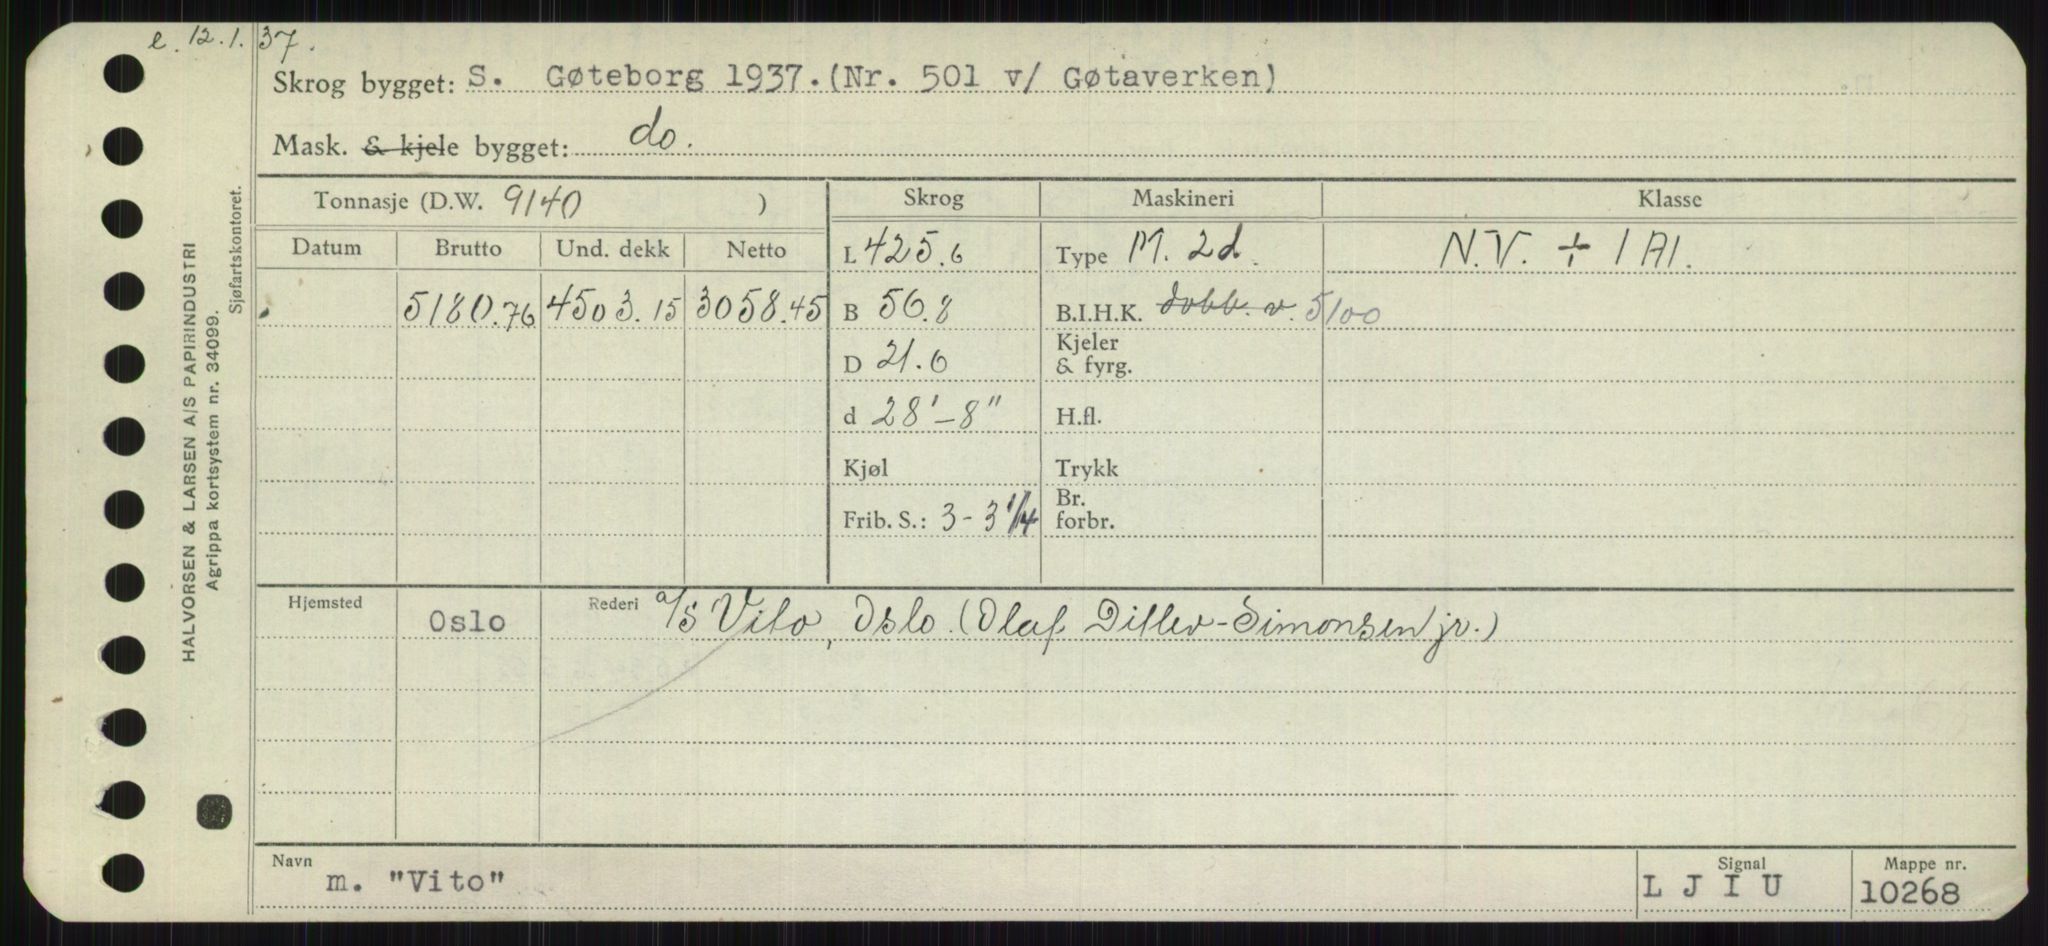 e. 12.1.37.
Skrog bygget: S. Gøteborg 1937.(Nr. 501 v/ Gøtaverken)
Mask. & kjele bygget: do.
Tonnasje (D.W. 9140 )
Skrog
Maskineri
Klasse
Datum
Brutto
Und. dekk
Netto
5180.76
4503.15
3058.45
L 425.6
B 56.8
D 21.0
d 28'-8"
Kjøl
Frib. S.: 3-3 1/4
Type M. 2d.
B.I.H.K. dobb. v. 5100
Kjeler
& fyrg.
H.fl.
Trykk
Br.
forbr.
N.V. + 1A1.
Hjemsted
Oslo
Rederi A/S Vito, Oslo. (Olaf Ditlev-Simonsen jr.)
Navn
m. "Vito"
Signal
L J I U
Mappe nr.
10268
HALVORSEN & LARSEN A/S PAPIRINDUSTRI
Agrippa kortsystem nr. 34099.
Sjøfartskontoret.